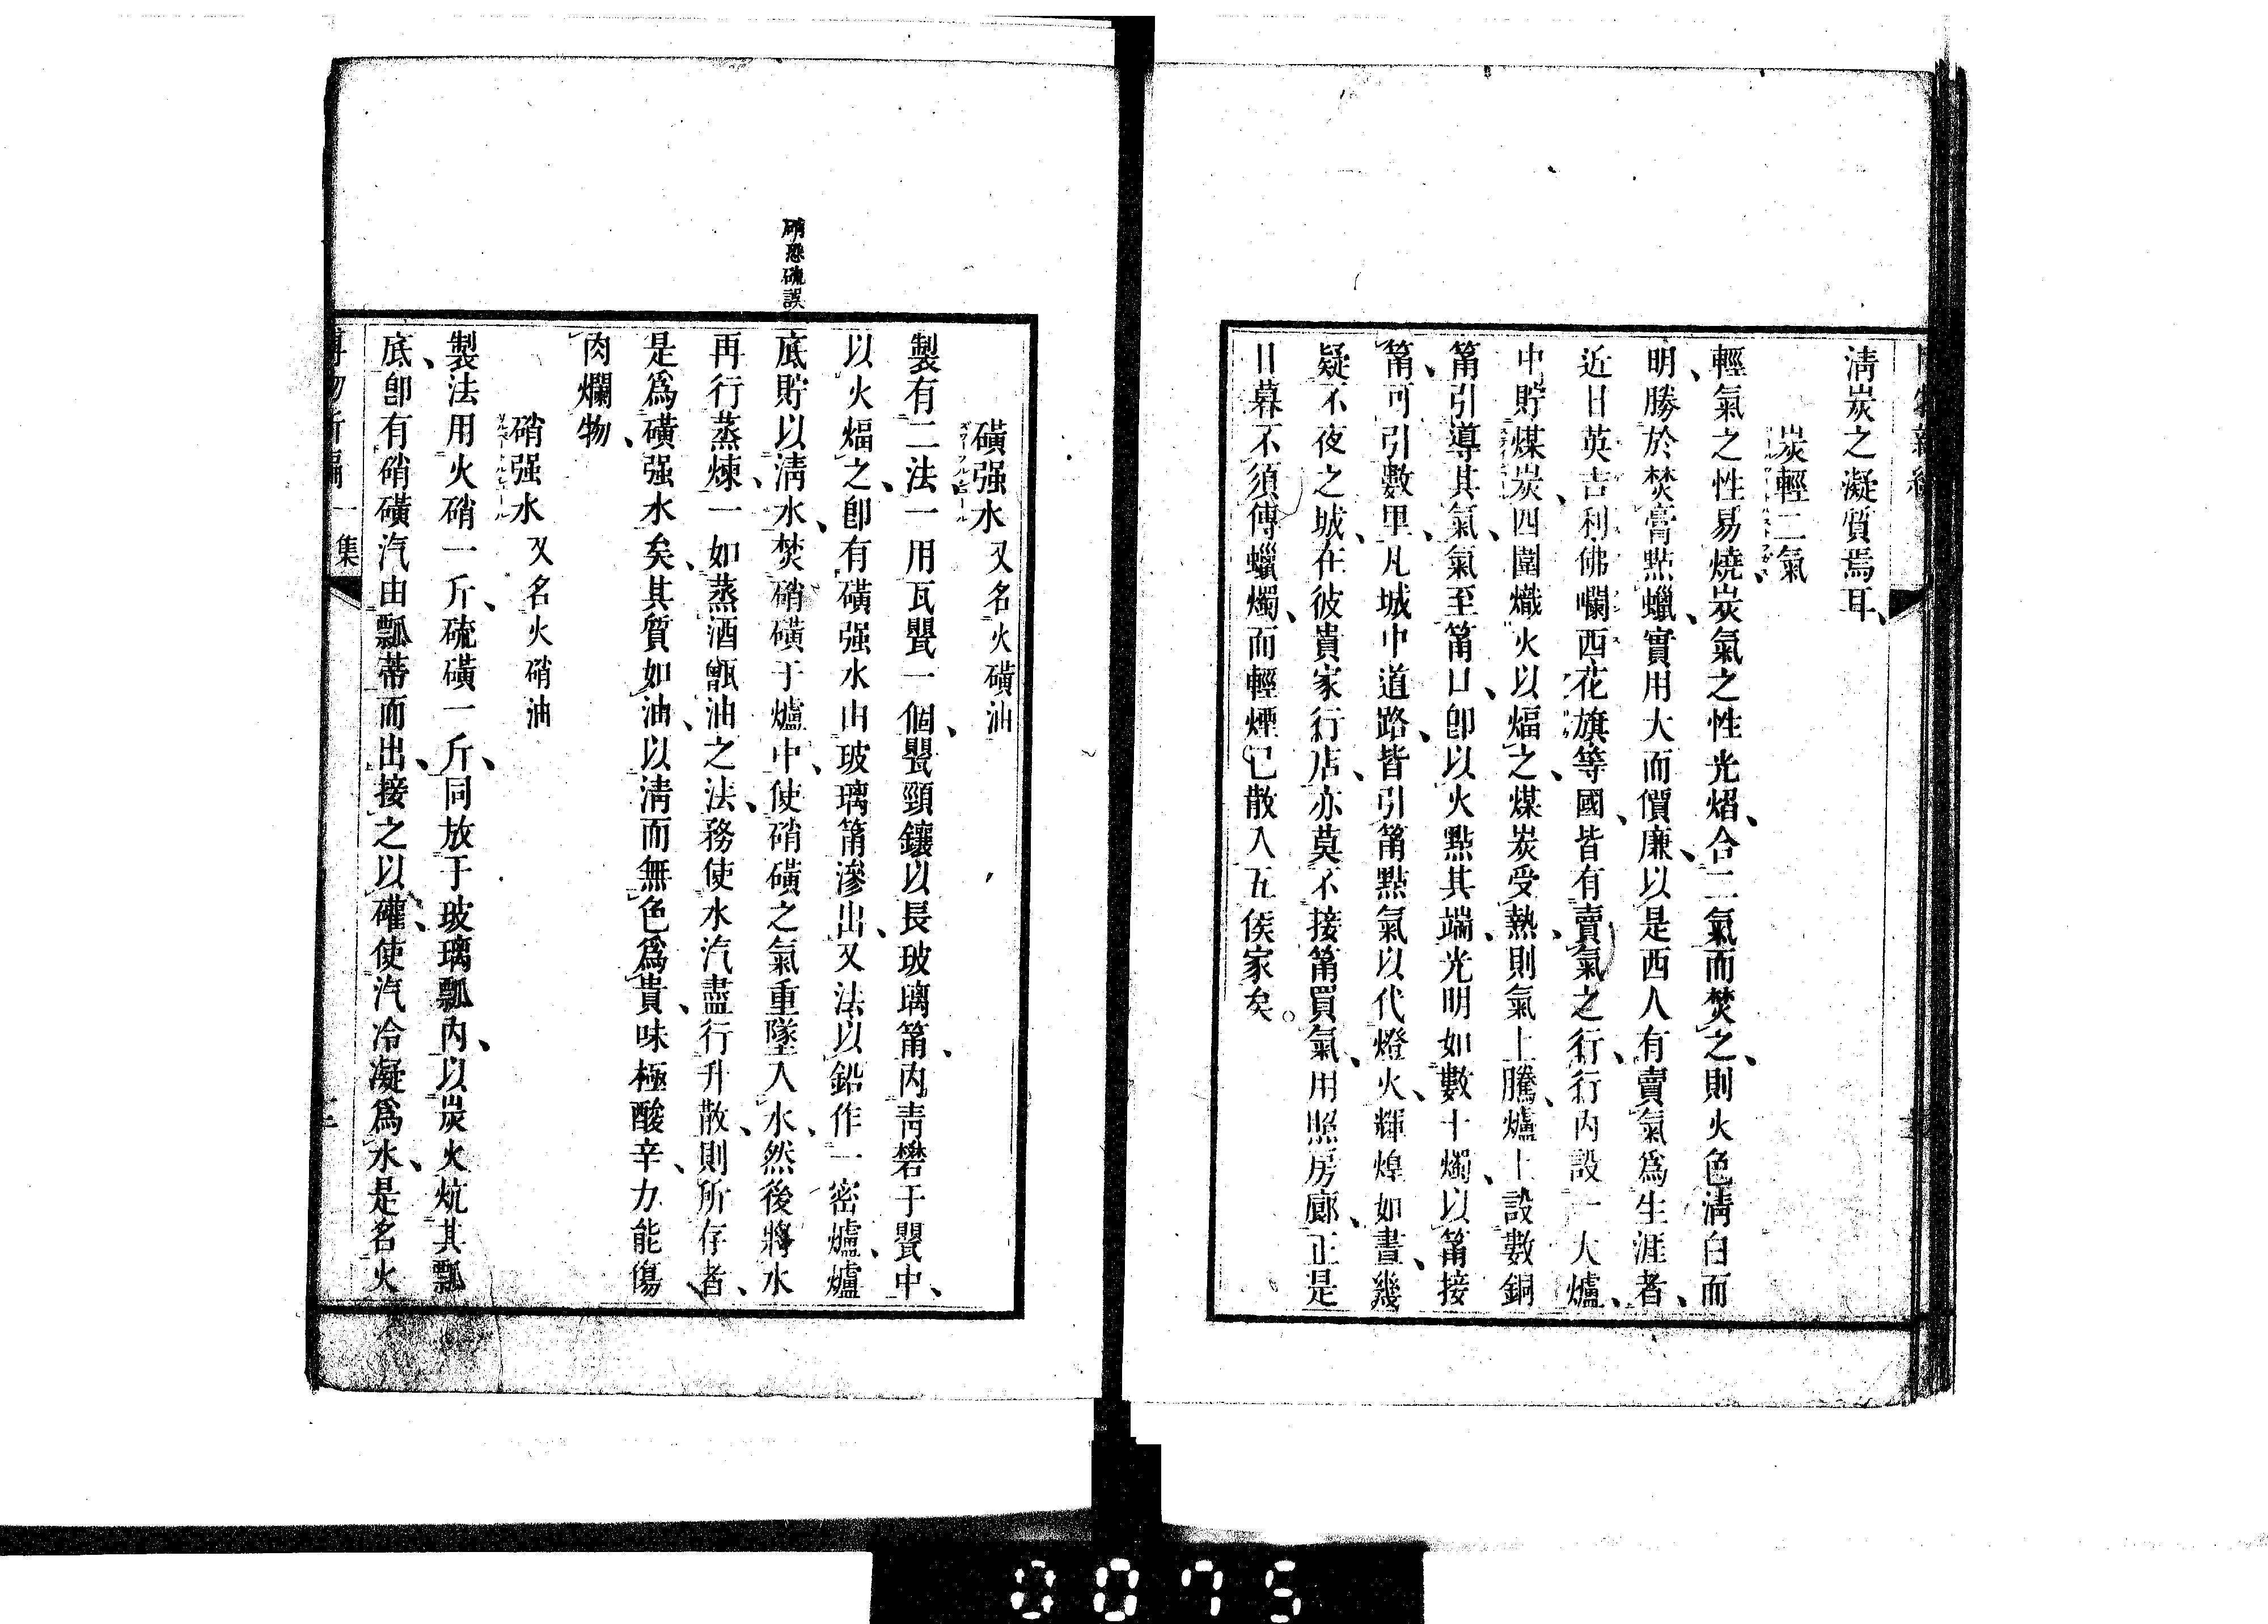 清炭之凝質焉耳、
炭輕二氣
輕氣之性易燒、炭氣之性光熖、合二氣而焚之、則火色清白而
明、勝於焚膏點蠟、實用大而價廉、以是西人有賣氣爲生涯者、
近日英吉利佛囒西花旗等國、皆有賣氣之行、行內設一大爐、
中貯煤炭、四圍熾火以煏之、煤炭受熱、則氣上騰、爐上設數銅
筩引導其氣、氣至筩口、卽以火點其端、光明如數十燭、以筩接
筩、可引數里、凡城中道路、皆引筩點氣以代燈火、輝煌如晝、幾
疑不夜之城、在彼貴家行店、亦莫不接筩買氣、用照房廊、正是
日暮不須傳蠟燭、而輕煙已散入五侯家矣。
磺强水 又名火磺油
製有二法、一用瓦甖一個、甖頸鑲以長玻璃筩、內靑礬于甖中、
以火煏之、卽有磺强水由玻璃筩滲出、又法以鉛作一密爐、爐
硝恐硫誤
底貯以淸水、焚硝磺于爐中、使硝磺之氣重墜入水、然後將水
再行蒸煉、一如蒸酒甑油之法、務使水汽盡行升散、則所存者、
是爲磺强水矣、其質如油、以淸而無色爲貴、味極酸辛、力能傷
肉爛物、
硝强水 又名火硝油
製法用火硝一斤、硫磺一斤、同放于玻璃瓢內、以炭火炕其瓢
底、卽有硝磺汽由瓢蒂而出、接之以礶、使汽冷凝爲水、是名火
一集